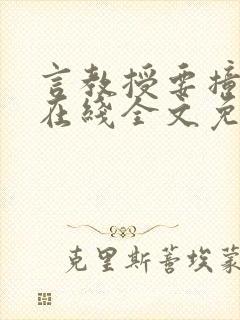 言教授要撞
在线全文免
克里斯蒂埃蒙